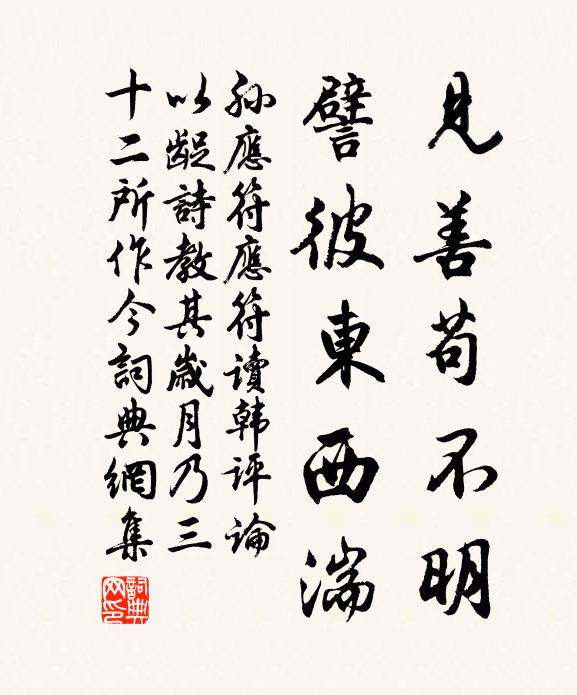 見善苟不明
譬彼東西湍
孫應符應符讀韩評論
以齪詩教其歲月乃三
十二所作今詞典網集
詞典网印